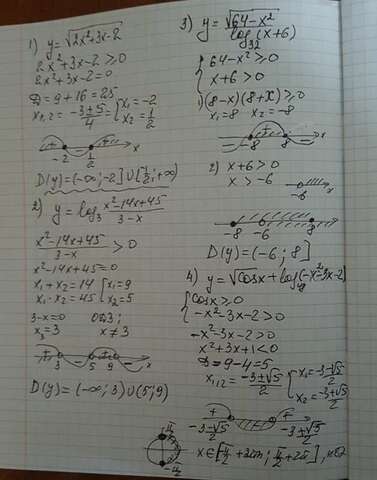 1) y=√2x²+3x-2
2x²+3x-2≥0
2x²+3x-2=0
D=9+16=25
x₁,₂=(-3±5)/4={x₁=-2
x₂=1/2
+ - + x
-2 1/2
D(y)=(-∞;-2]∪[1/2;+∞)
2) y=log₃ (x²-14x+45)/(3-x)
(x²-14x+45)/(3-x) > 0
x²-14x+45=0
x₁+x₂=14 {x₁=9
x₁·x₂=45 {x₂=5
3-x=0 ОДЗ;
x₃=3 x≠3
+ - + - x
3 5 9
D(y)=(-∞;3)∪(5;9)
3) y=√64-x²
log (x+6)
{64-x²≥0
x+6>0
1)(8-x)(8+x)≥0
x₁=8 x₂=-8
- + - x
-8 8
2) x+6>0
x>-6
-6 x
-8 -6 8
D(y)=(-6;8]
4) y=√cosx+log(-x²-3x-2)
{cosx≥0
-x²-3x-2>0
-x²-3x-2>0
x²+3x+1<0
D=9-4=5
x₁,₂=(-3±√5)/2 {x₁=(-3-√5)/2
x₂=(-3+√5)/2
+ - +